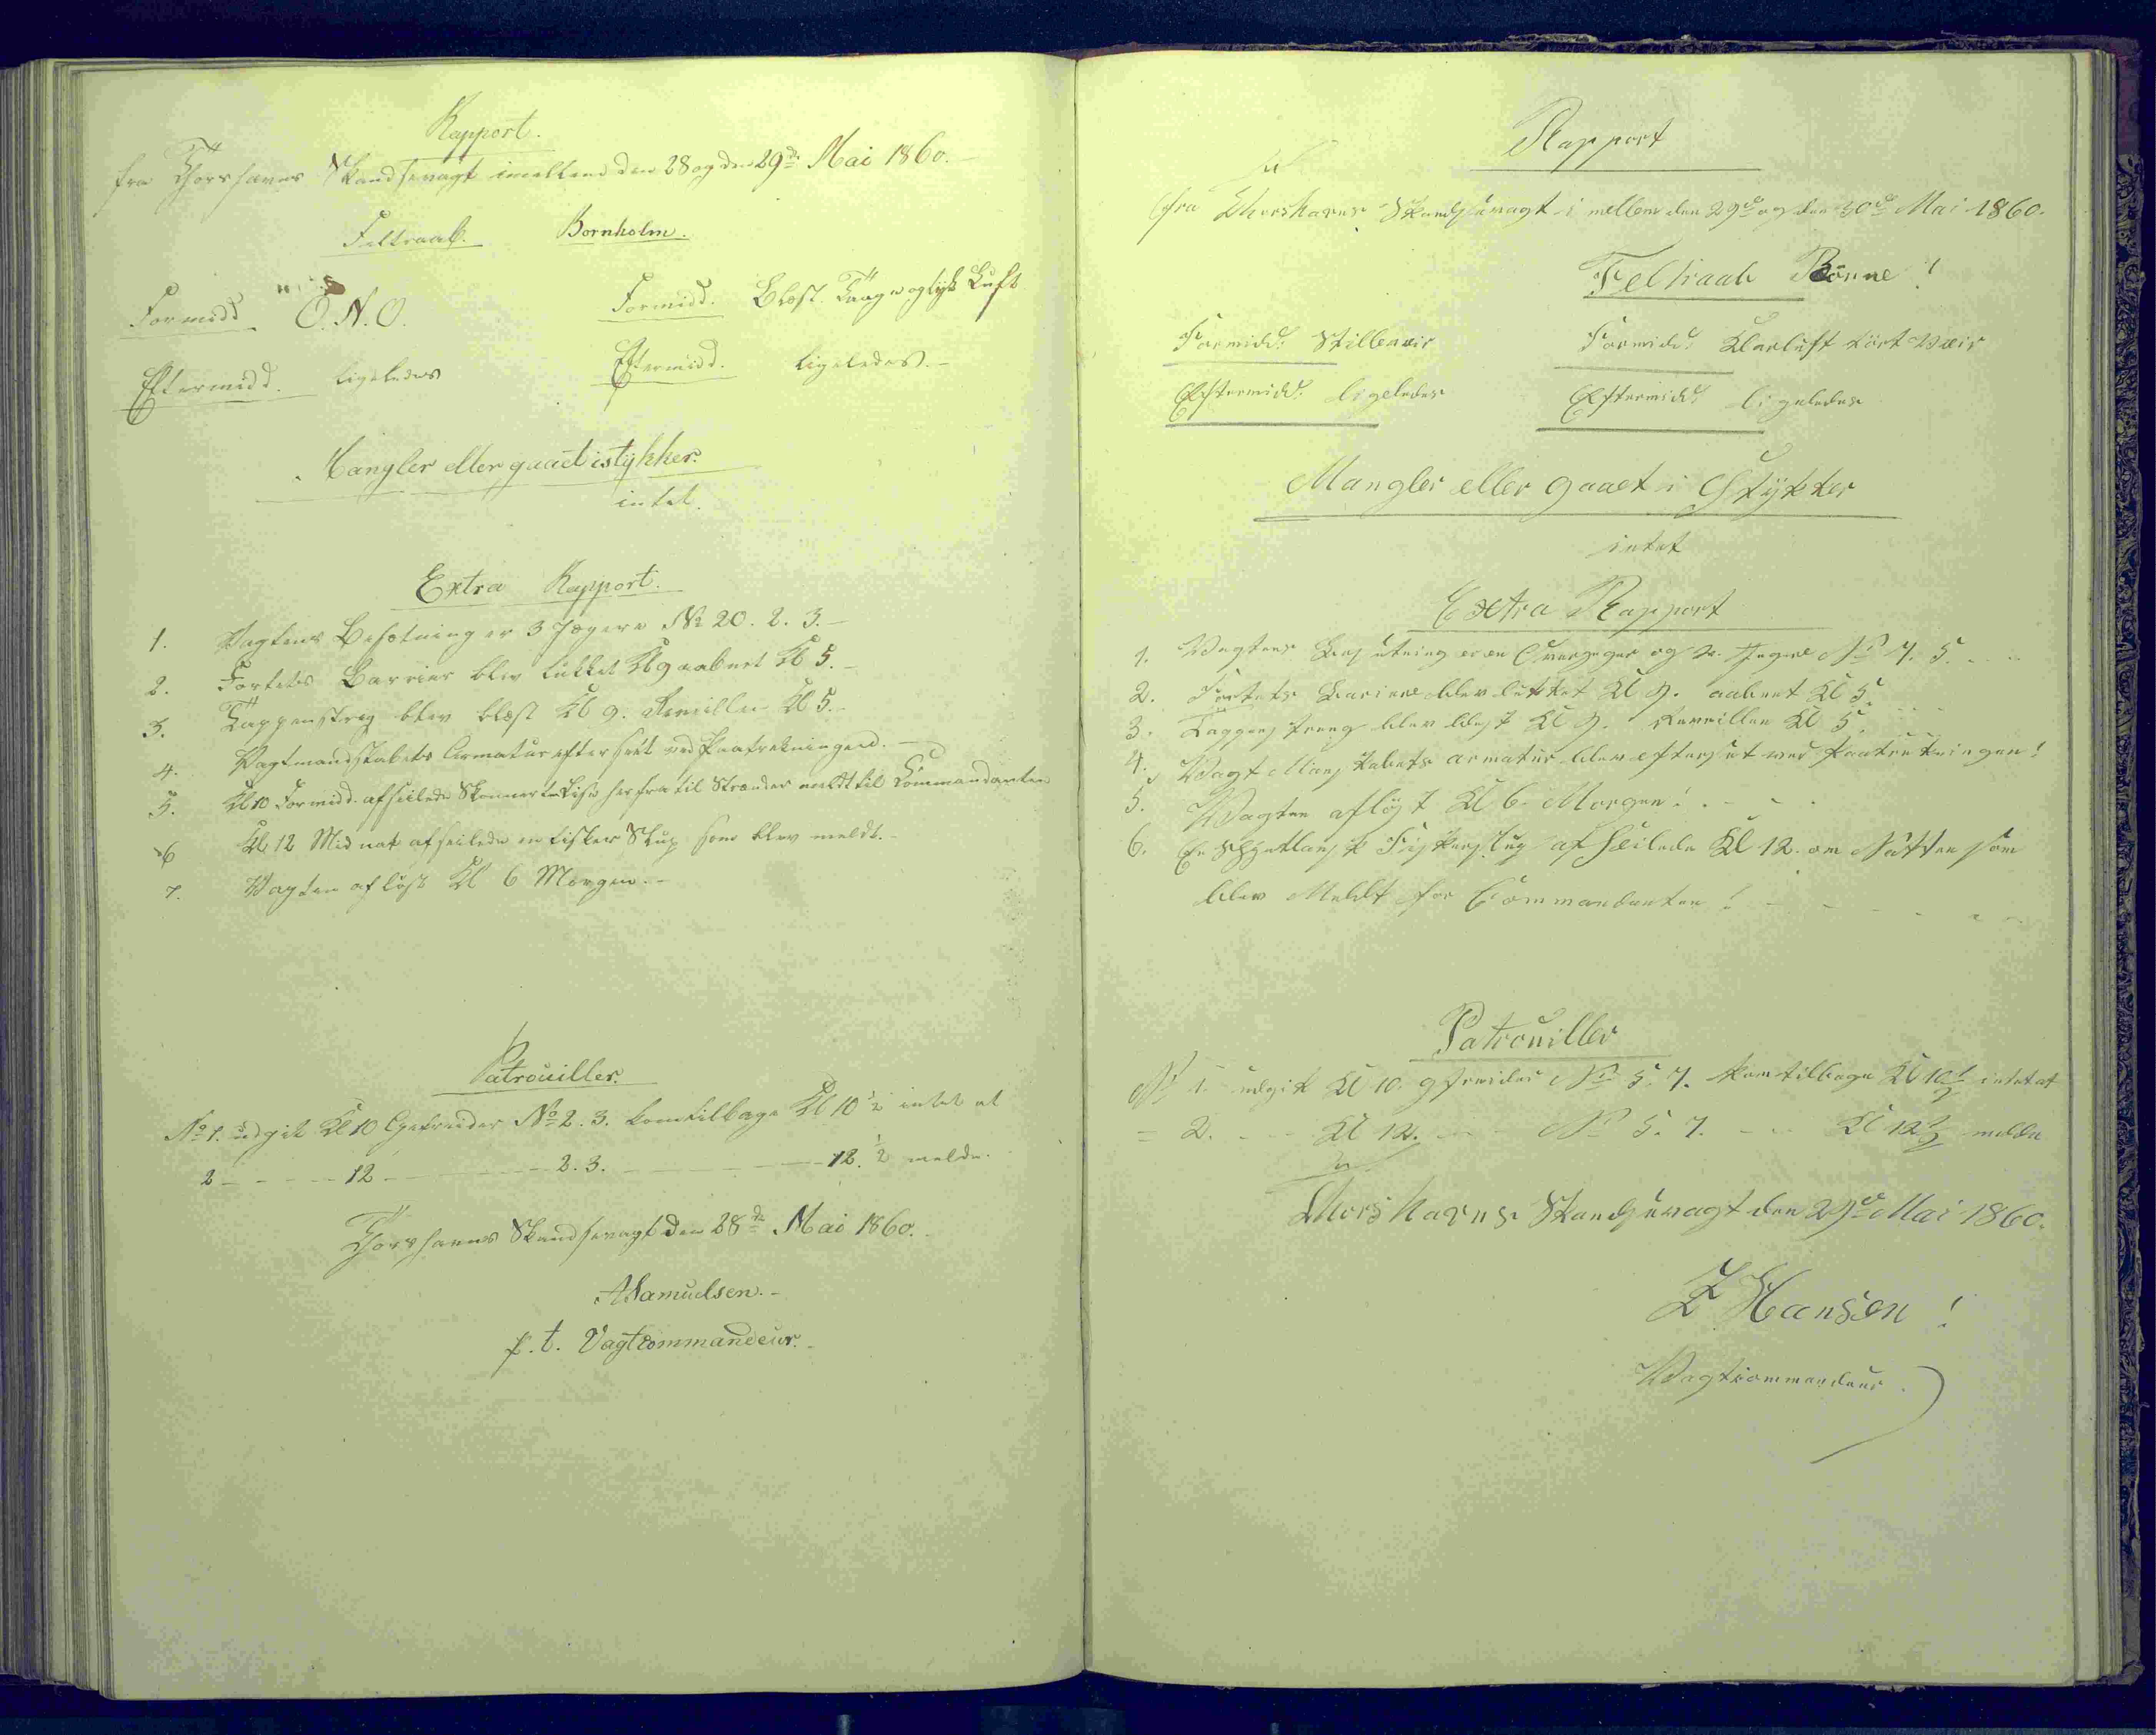 Rapport.
fra Thorshavns Skandsevagt imellem den 28 og den 29de Mai 1860.
Feltraab. Bornholm.
Formidd O.N.O. Formidd. Blæst. Taage og tyk Luft
Eftermidd. ligeledes Eftermidd. ligeledes.
Mangler eller gaaet istykker.
intet.
Extra Rapport.
1. Vagtens Besætning er 3 Jægere No 20. 2. 3.
2. Fortets Barrier blev lukket Kl 9 aabnet Kl 5.
3. Tappenstreg blev blæst Kl 9. Reveillen Kl 5.
4. Vagtmandskabets Armatur efterseet ved Paatrækningen.
5. Kl 10 Formidd. afseilede Skonnerten herfra til Strænder meldt til Commandanten
6 Kl 12 Midnat afseilede en Fisker Slup som blev meldt.
7. Vagten afløst Kl 6 Morgen.
Patrouiller.
No 1. udgik Kl 10 Gefreider No 2. 3. kom tilbage Kl 10 1/2 intet at
2 - 12 - 2. 3. - 12. 1/2 melde.
Thorshavns Skandsevagt den 28de Mai 1860.
A Samuelsen.
p. t. Vagtcommandeur.
Rapport
fra Thorshavns Skandsevagt i mellem den 29de og den 30de Mai 1860.
Feltraab Rönne!
Formidd: Stilleveir Formidd: Klarluft tört Veir
Eftermidd: ligeledes Eftermidd: ligeledes
Mangler eller gaaet i Stykker
intet
Extra Rapport
1. Vagtens Besetning er en Overjeger og 2. Jegere No 7. 5.
2. Fortets Bariere blev lukket Kl 9. aabnet Kl 5.
3. Tappenstreng blev blest Kl 9. Reveillen Kl 5.
4. Vagt Manskabets armatur blev efterset ved Paatrekningen!
5. Vagten aflöst Kl 6. Morgen!
6. En Shjetlansk Fiskerslup af Seilede Kl 12. om Natten som
blev Meldt for Commandanten!
Patrouiller
No 1. udgik Kl 10. gefreider No 5. 7. kom tilbage Kl 10 1/2 intet at
= 2. - Kl 12. - No 5. 7. - Kl 12 1/2 melde
Thorshavns Skandsevagt den 29de Mai 1860.
Z Hansen!
Vagtcommandeur.